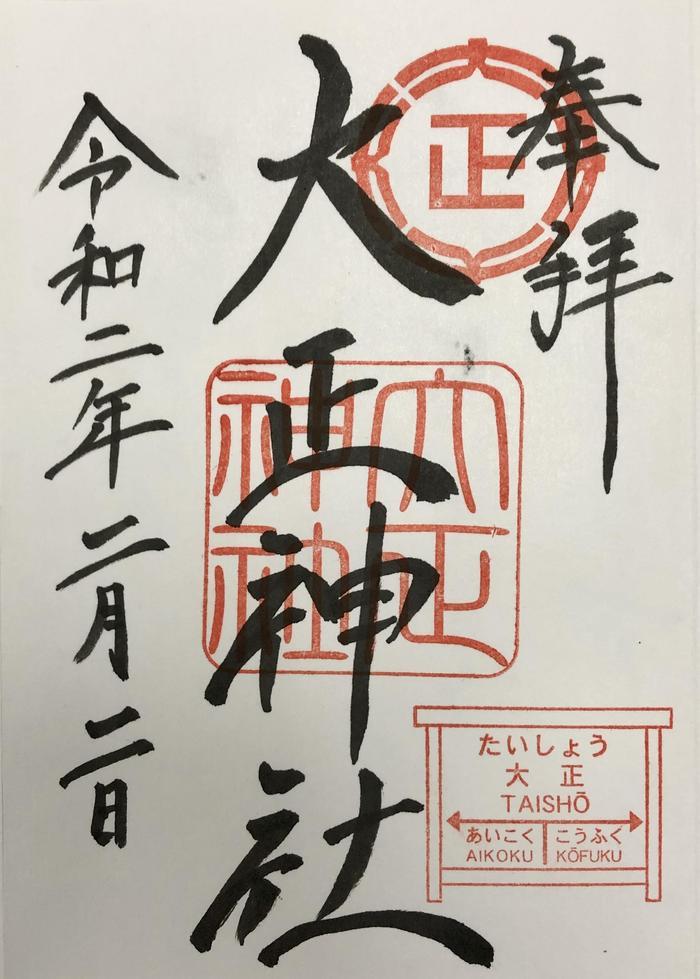 奉拝
正
大正神社
大正
神社
たいしょう
大正
TAISHŌ
あいこく こうふく
AIKOKU KŌFUKU
令和二年二月二日